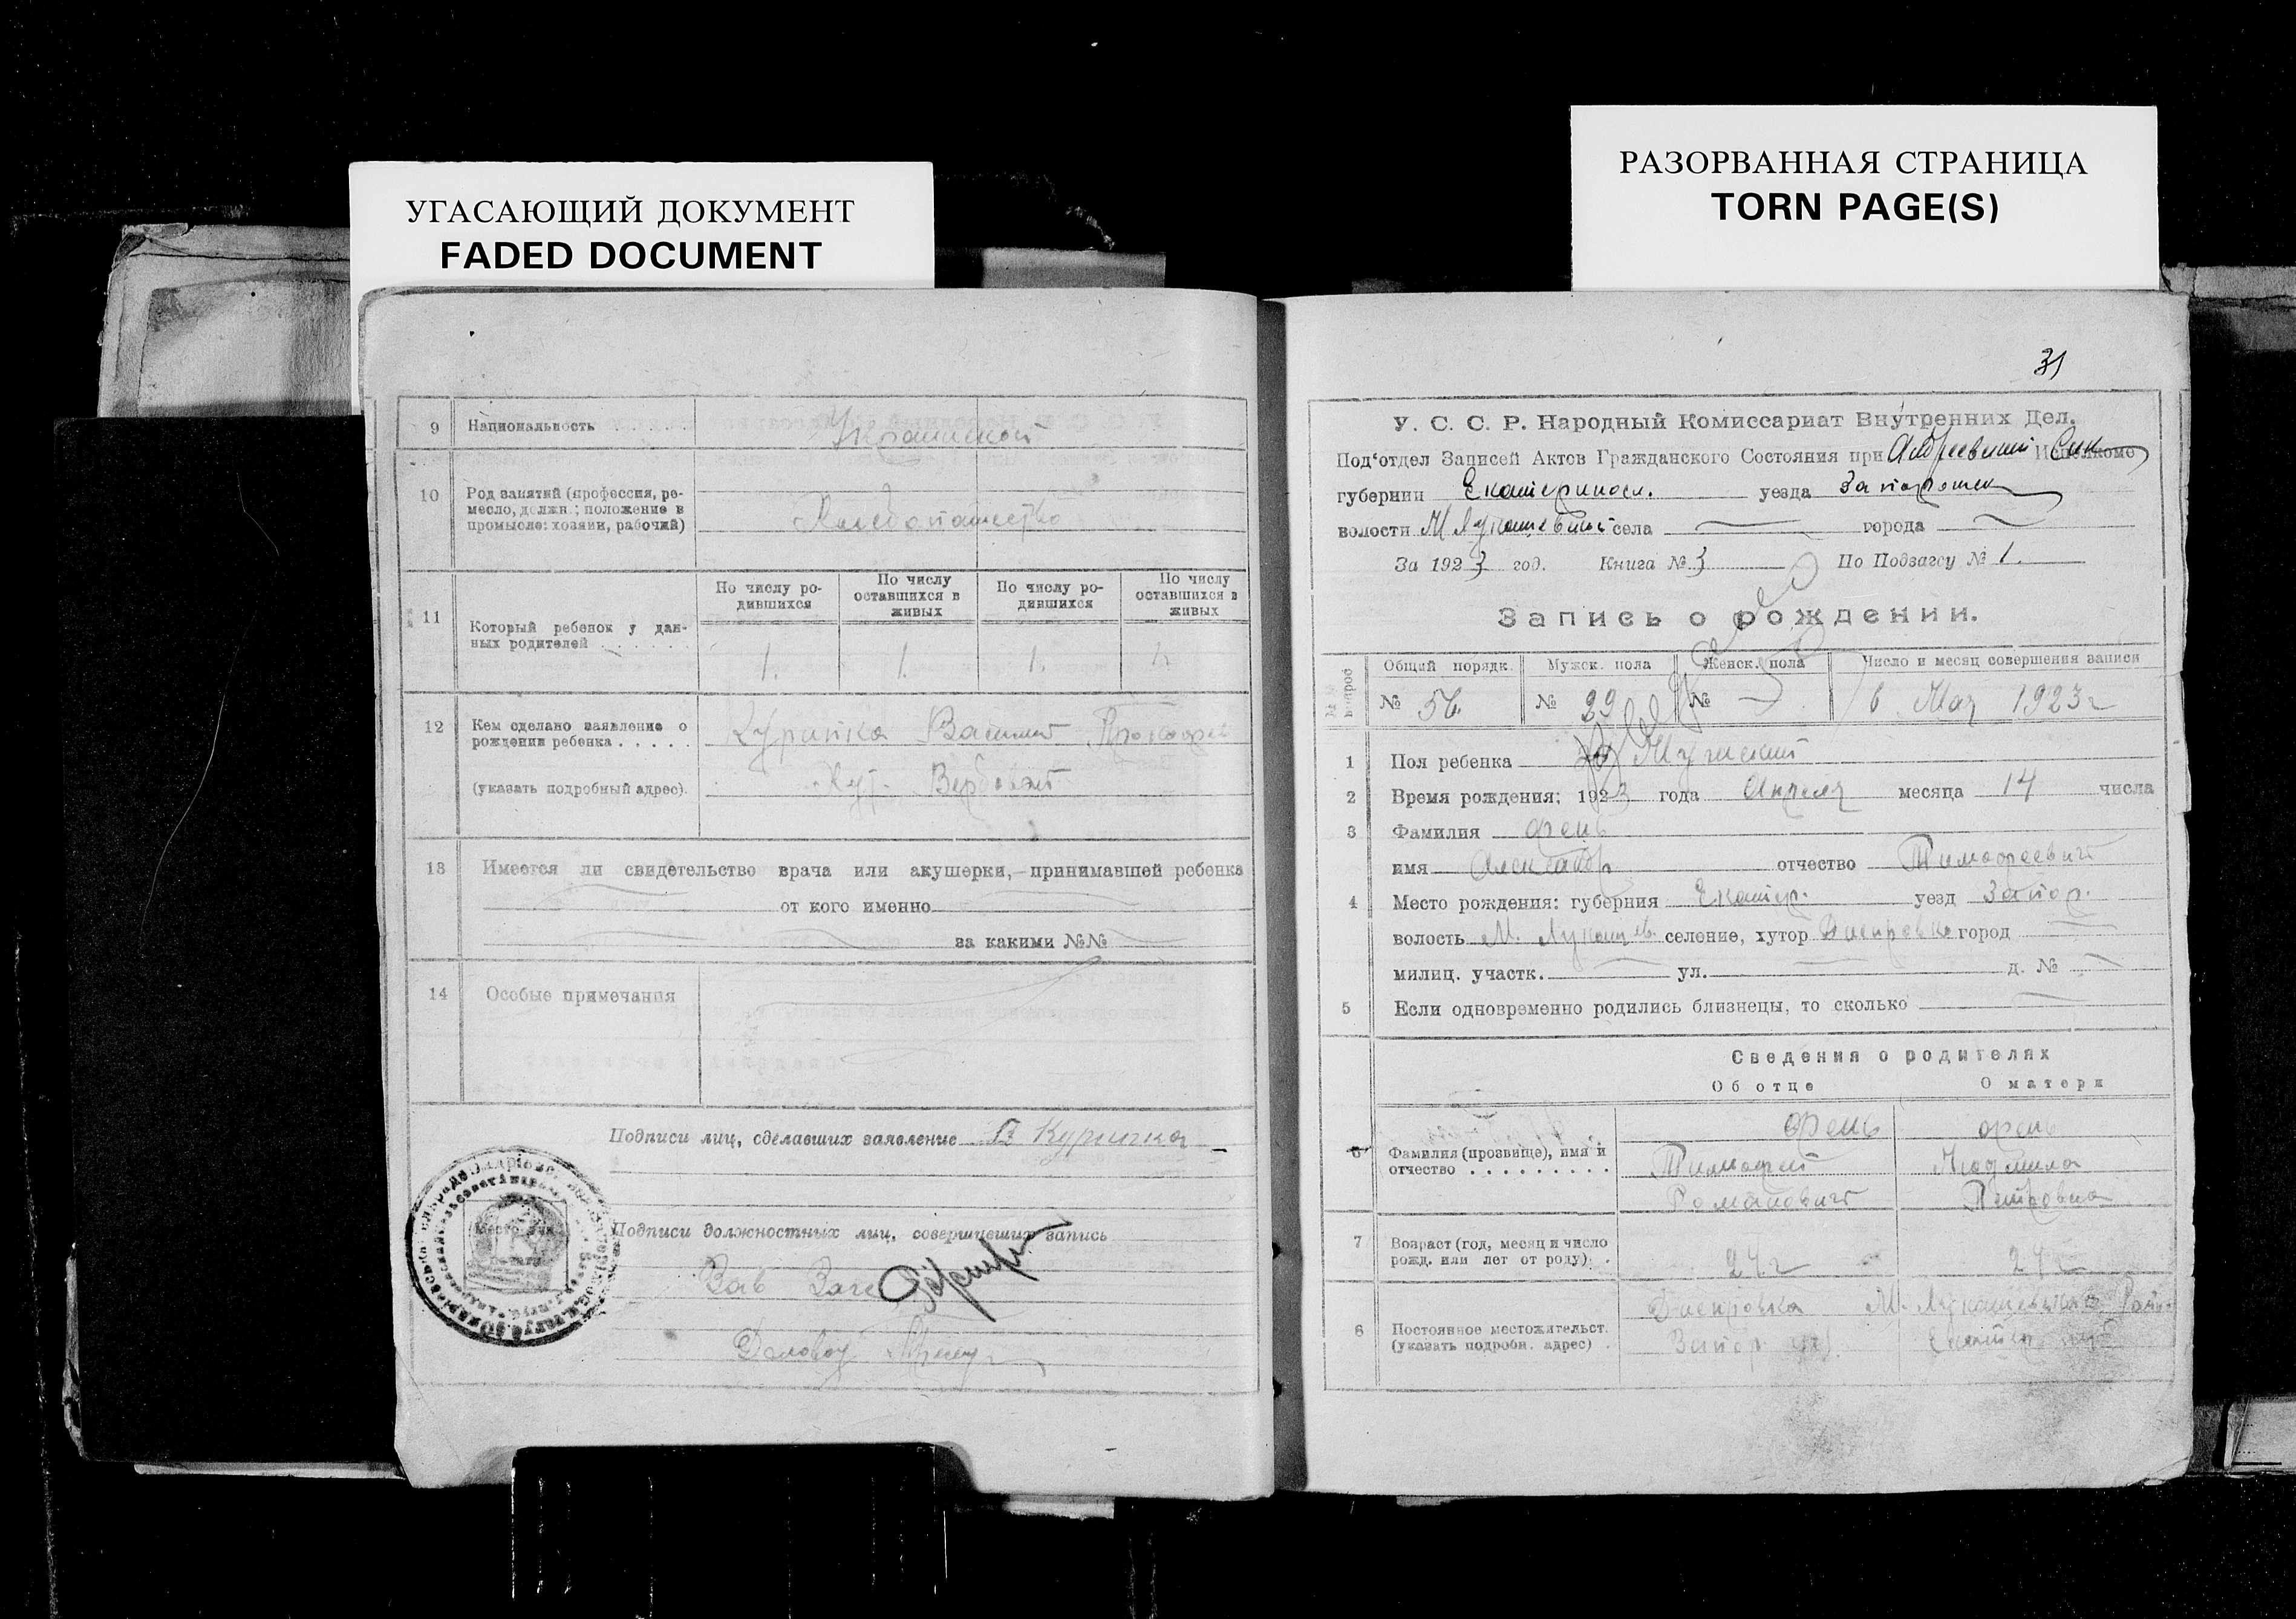 УГАСАЮЩИЙ ДОКУМЕНТ
FADED DOCUMENT
9 Национальность
Украинской
10 Род занятий (профессия, ре-
месло, должн.; положение в
промысле: хозяин, рабочий)
Хлебопашество
11 Который ребенок у дан-
ных родителей
По числу ро-
дившихся
По числу
оставшихся в
живых
По числу ро-
дившихся
По числу
оставшихся в
живых
1. 1. 1. 1.
12 Кем сделано заявление о
рождении ребенка
(указать подробный адрес).
Василий
13 Имеется ли свидетельство врача или акушерки, принимавшей ребенка
от кого именно
за какими №№
14 Особые примечания
Подписи лиц, сделавших заявление В
Подписи должностных лиц, совершивших запись
Зав
РАЗОРВАННАЯ СТРАНИЦА
TORN PAGE(S)
31
У. С. С. Р. Народный Комиссариат Внутренних Дел.
Под'отдел Записей Актов Гражданского Состояния при Исполкоме
губернии Екатериносл. уезда
волости села города
За 1923 год. Книга № 3 По Подзагсу № 1.
Запись о рождении.
№№ вопрос
Общий порядк. Мужск. пола Женск. пола Число и месяц совершения записи
№ 56 № 29 № 6 Мая 1923 г
1 Пол ребенка Мужский
2 Время рождения: 1923 года Апреля месяца 14 числа
3 Фамилия Орень
имя Александр отчество Тимофеевич
4 Место рождения: губерния Екатер. уезд Запор.
волость М. Лукашев. селение, хутор Днепровка город
милиц. участк. ул. д. №
5 Если одновременно родились близнецы, то сколько
Сведения о родителях
Об отце О матери
6 Фамилия (прозвище), имя и
отчество
Орень
Тимофей
Романович
Орень
Людмила
Петровна
7 Возраст (год, месяц и число
рожд. или лет от роду)
24 г
8 Постоянное местожительст.
(указать подробн. адрес)
Днепровка М. Лукашевской
Запор